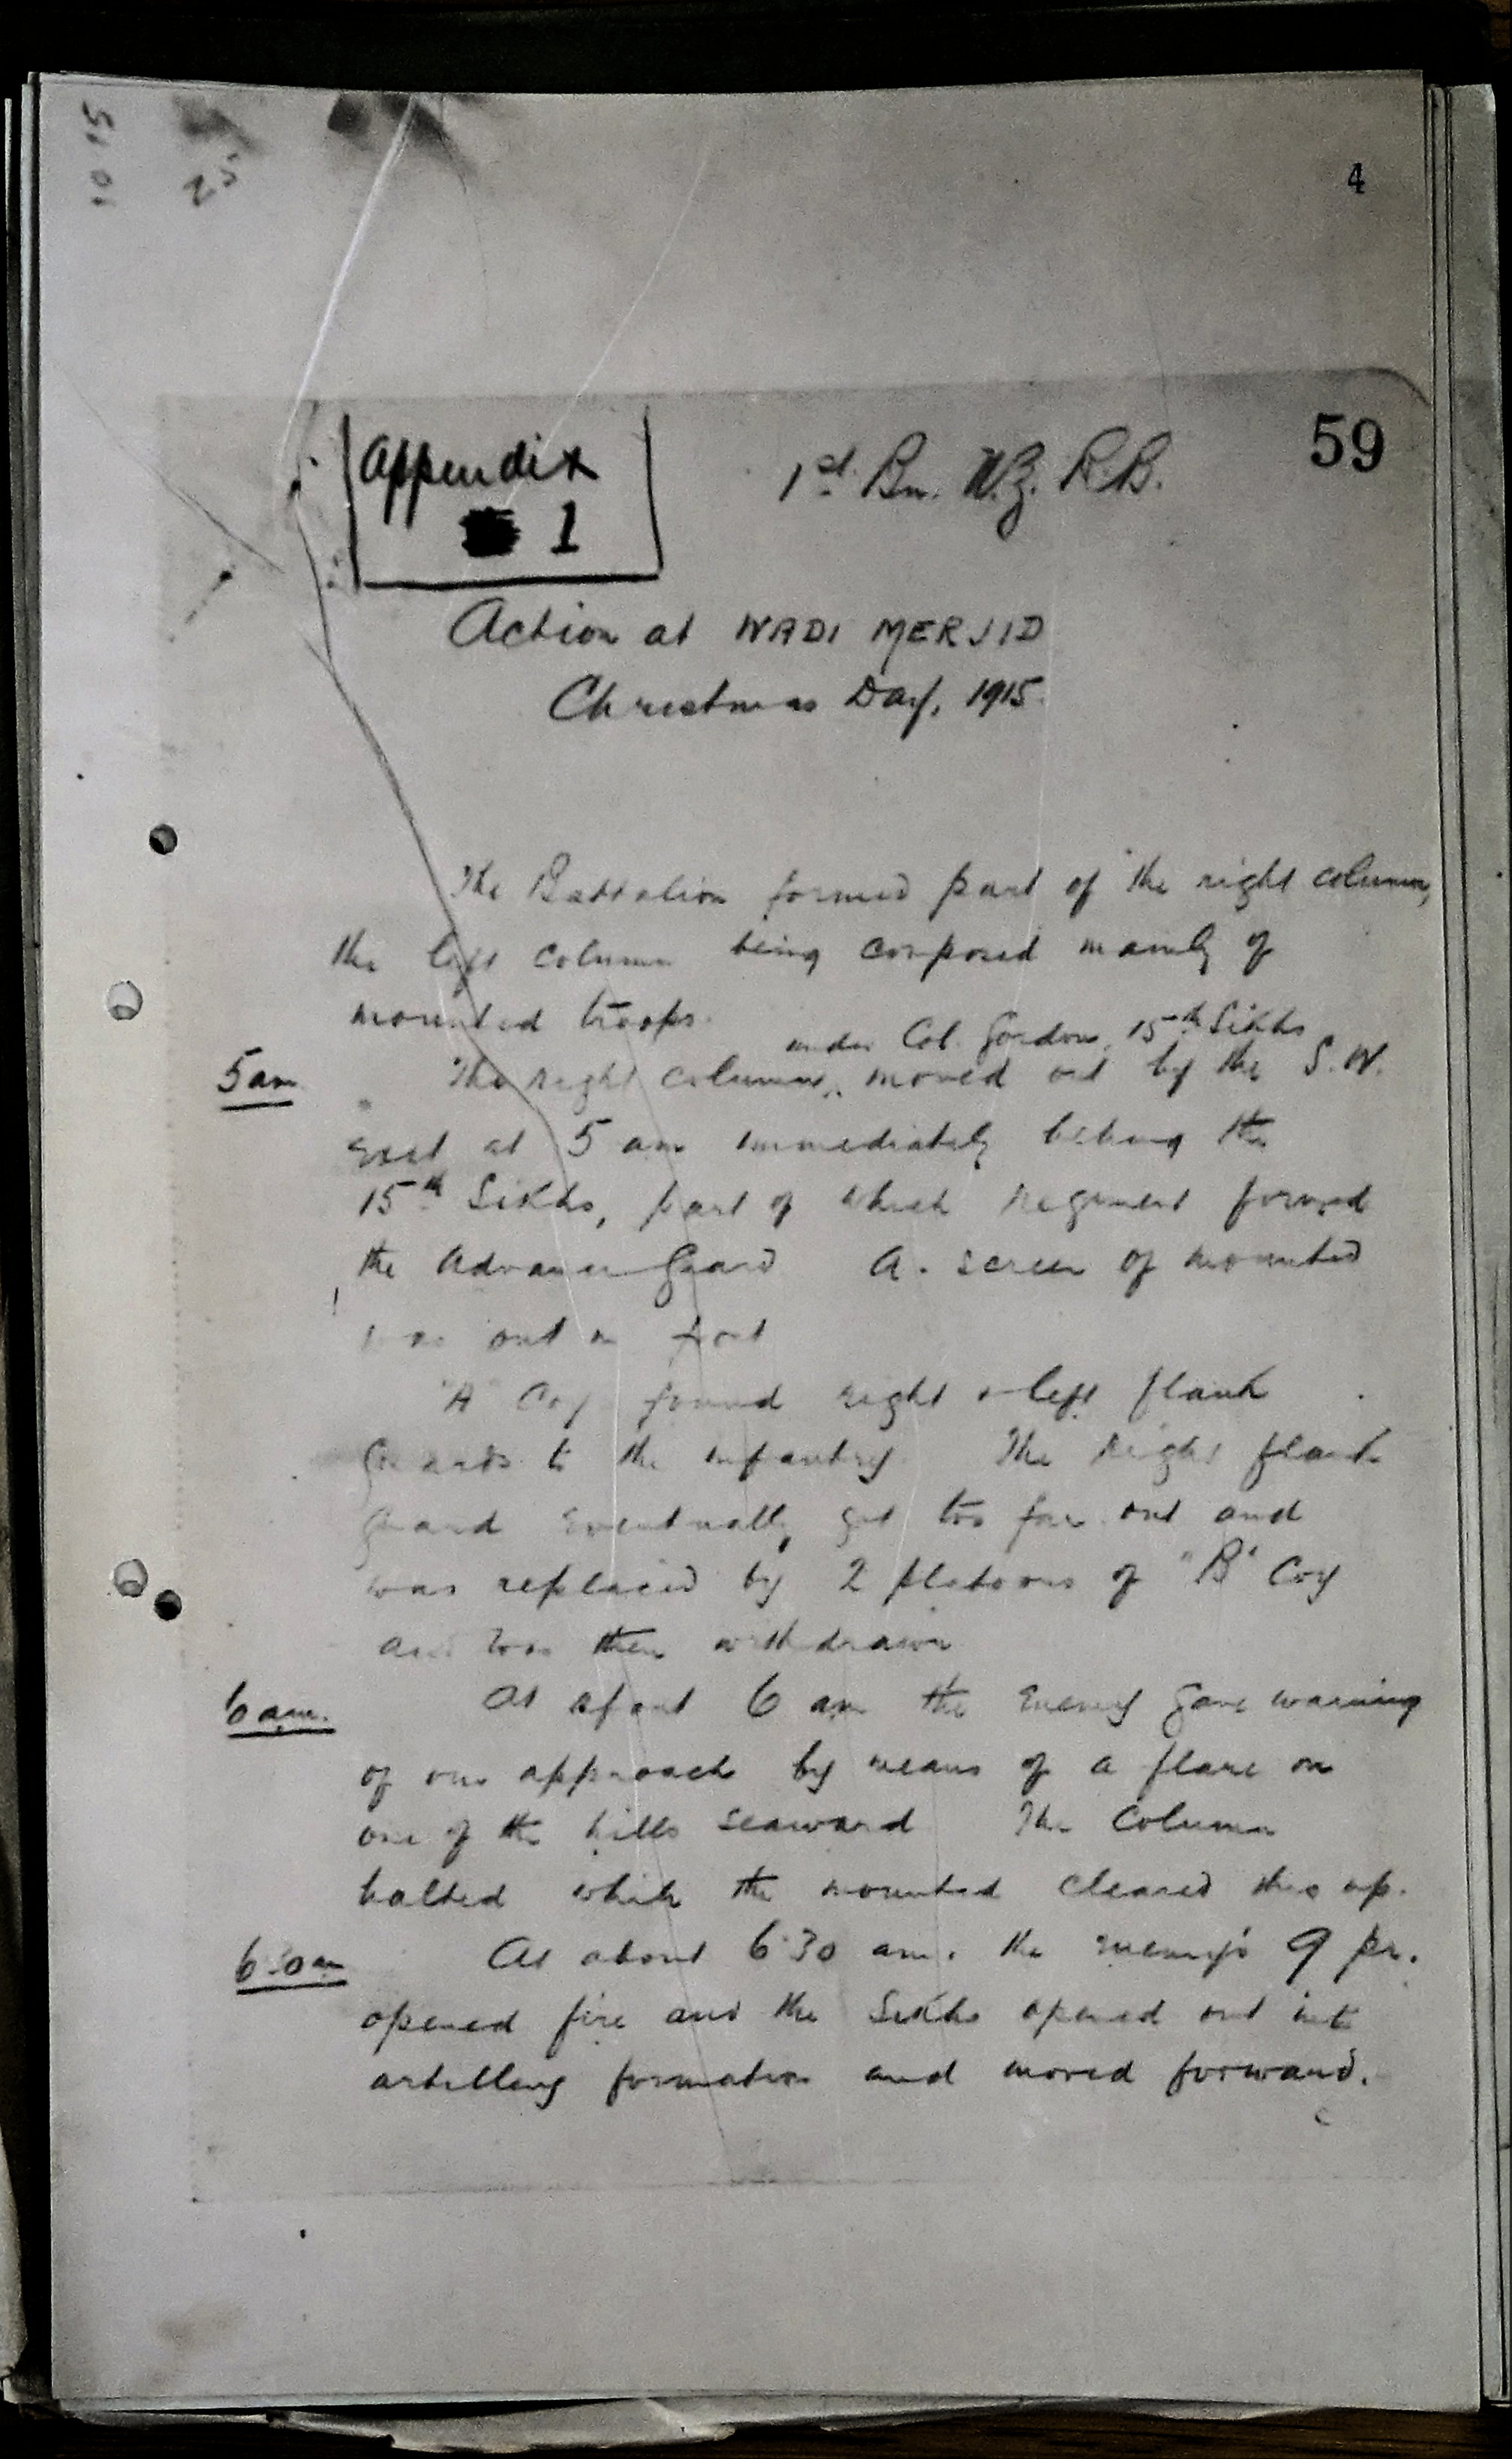 10 15
25
4
59
Appendix
1
1st Bn. N.Z. R.B.
Action at WADI MERJID
Christmas Day, 1915.
The Battalion formed part of the right column,
the left column being composed mainly of
mounted troops.
under Col. Gordon, 15th Sikhs
5 am
The right column, moved out by the S.W.
exit at 5 am immediately behind the
15th Sikhs, part of which Regiment formed
the Advance Guard A. screen of mounted
was out in front
"A" Coy found right & left flank
Guards to the infantry. The right flank
guard eventually got too far out and
was replaced by 2 platoons of "B" Coy
and was then withdrawn
6 am.
At about 6 am the enemy gave warning
of our approach by means of a flare on
one of the hills seaward The Column
halted while the mounted cleared this up.
6.30 am
At about 6.30 am. the enemy's 9 pr.
opened fire and the Sikhs opened out into
artillery formation and moved forward.